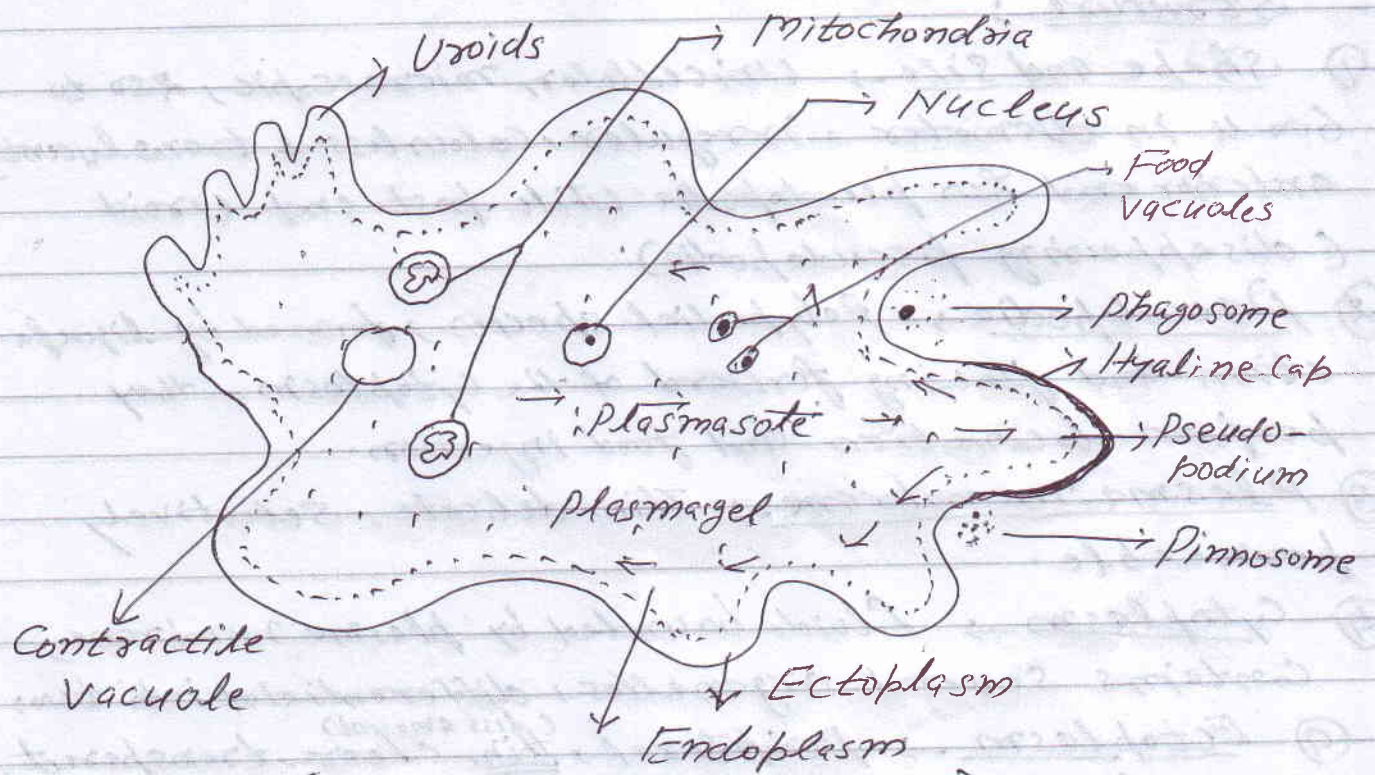 Uroids
Mitochondria
Nucleus
Food
Vacuoles
Phagosome
Hyaline Cap
Pseudo-
podium
Plasmasole
Plasmagel
Pinnosome
Contractile
Vacuole
Ectoplasm
Endoplasm